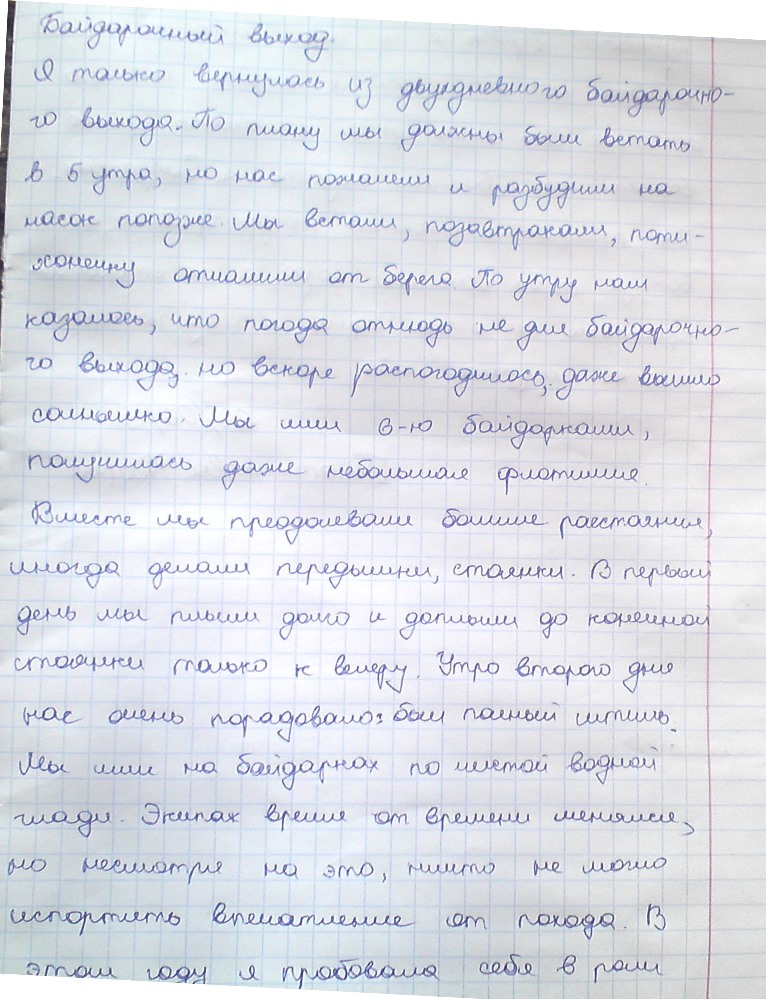 Байдарочный выход.
Я только вернулась из двухдневного байдарочно-
го выхода. По плану мы должны были встать
в 5 утра, но нас пожалели и разбудили на
часок попозже. Мы встали, позавтракали, поти-
хонечку отчалили от берега. По утру нам
казалось, что погода отнюдь не для байдарочно-
го выхода, но вскоре распогодилось, даже вышло
солнышко. Мы шли 6-ю байдарками,
получилась даже небольшая флотилия.
Вместе мы преодолевали большие расстояния,
иногда делали передышки, стоянки. В первый
день мы плыли долго и доплыли до конечной
стоянки только к вечеру. Утро второго дня
нас очень порадовало: был полный штиль.
Мы шли на байдарках по чистой водной
глади. Экипаж время от времени менялся,
но несмотря на это, ничто не могло
испортить впечатление от похода. В
этом году я пробовала себя в роли